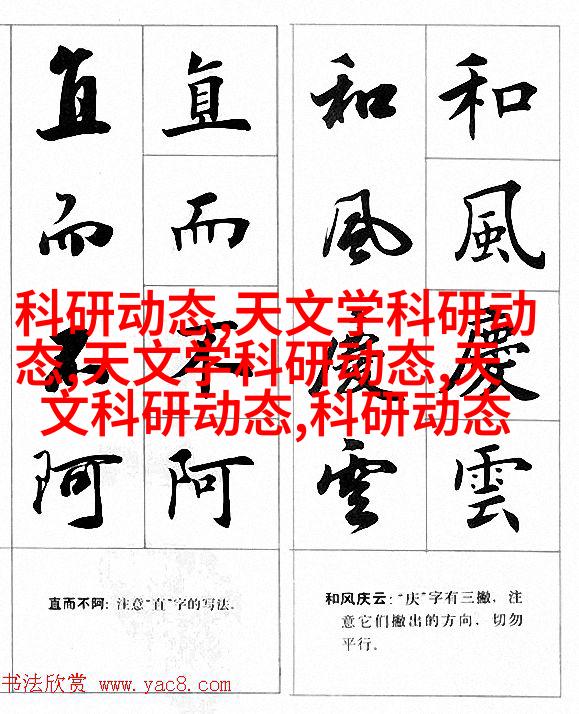 和風慶雲
和風慶雲
直而不阿
直而不阿
科研动态,天文学科研动
态,天文学科研动态,天
文科研动态,科研动态
和风庆云:“庆”字有三撇，注
意它们撇出的方向，切勿
平行。
直而不阿: 注意“直”字的写法.
书法欣赏 www.yac8.com